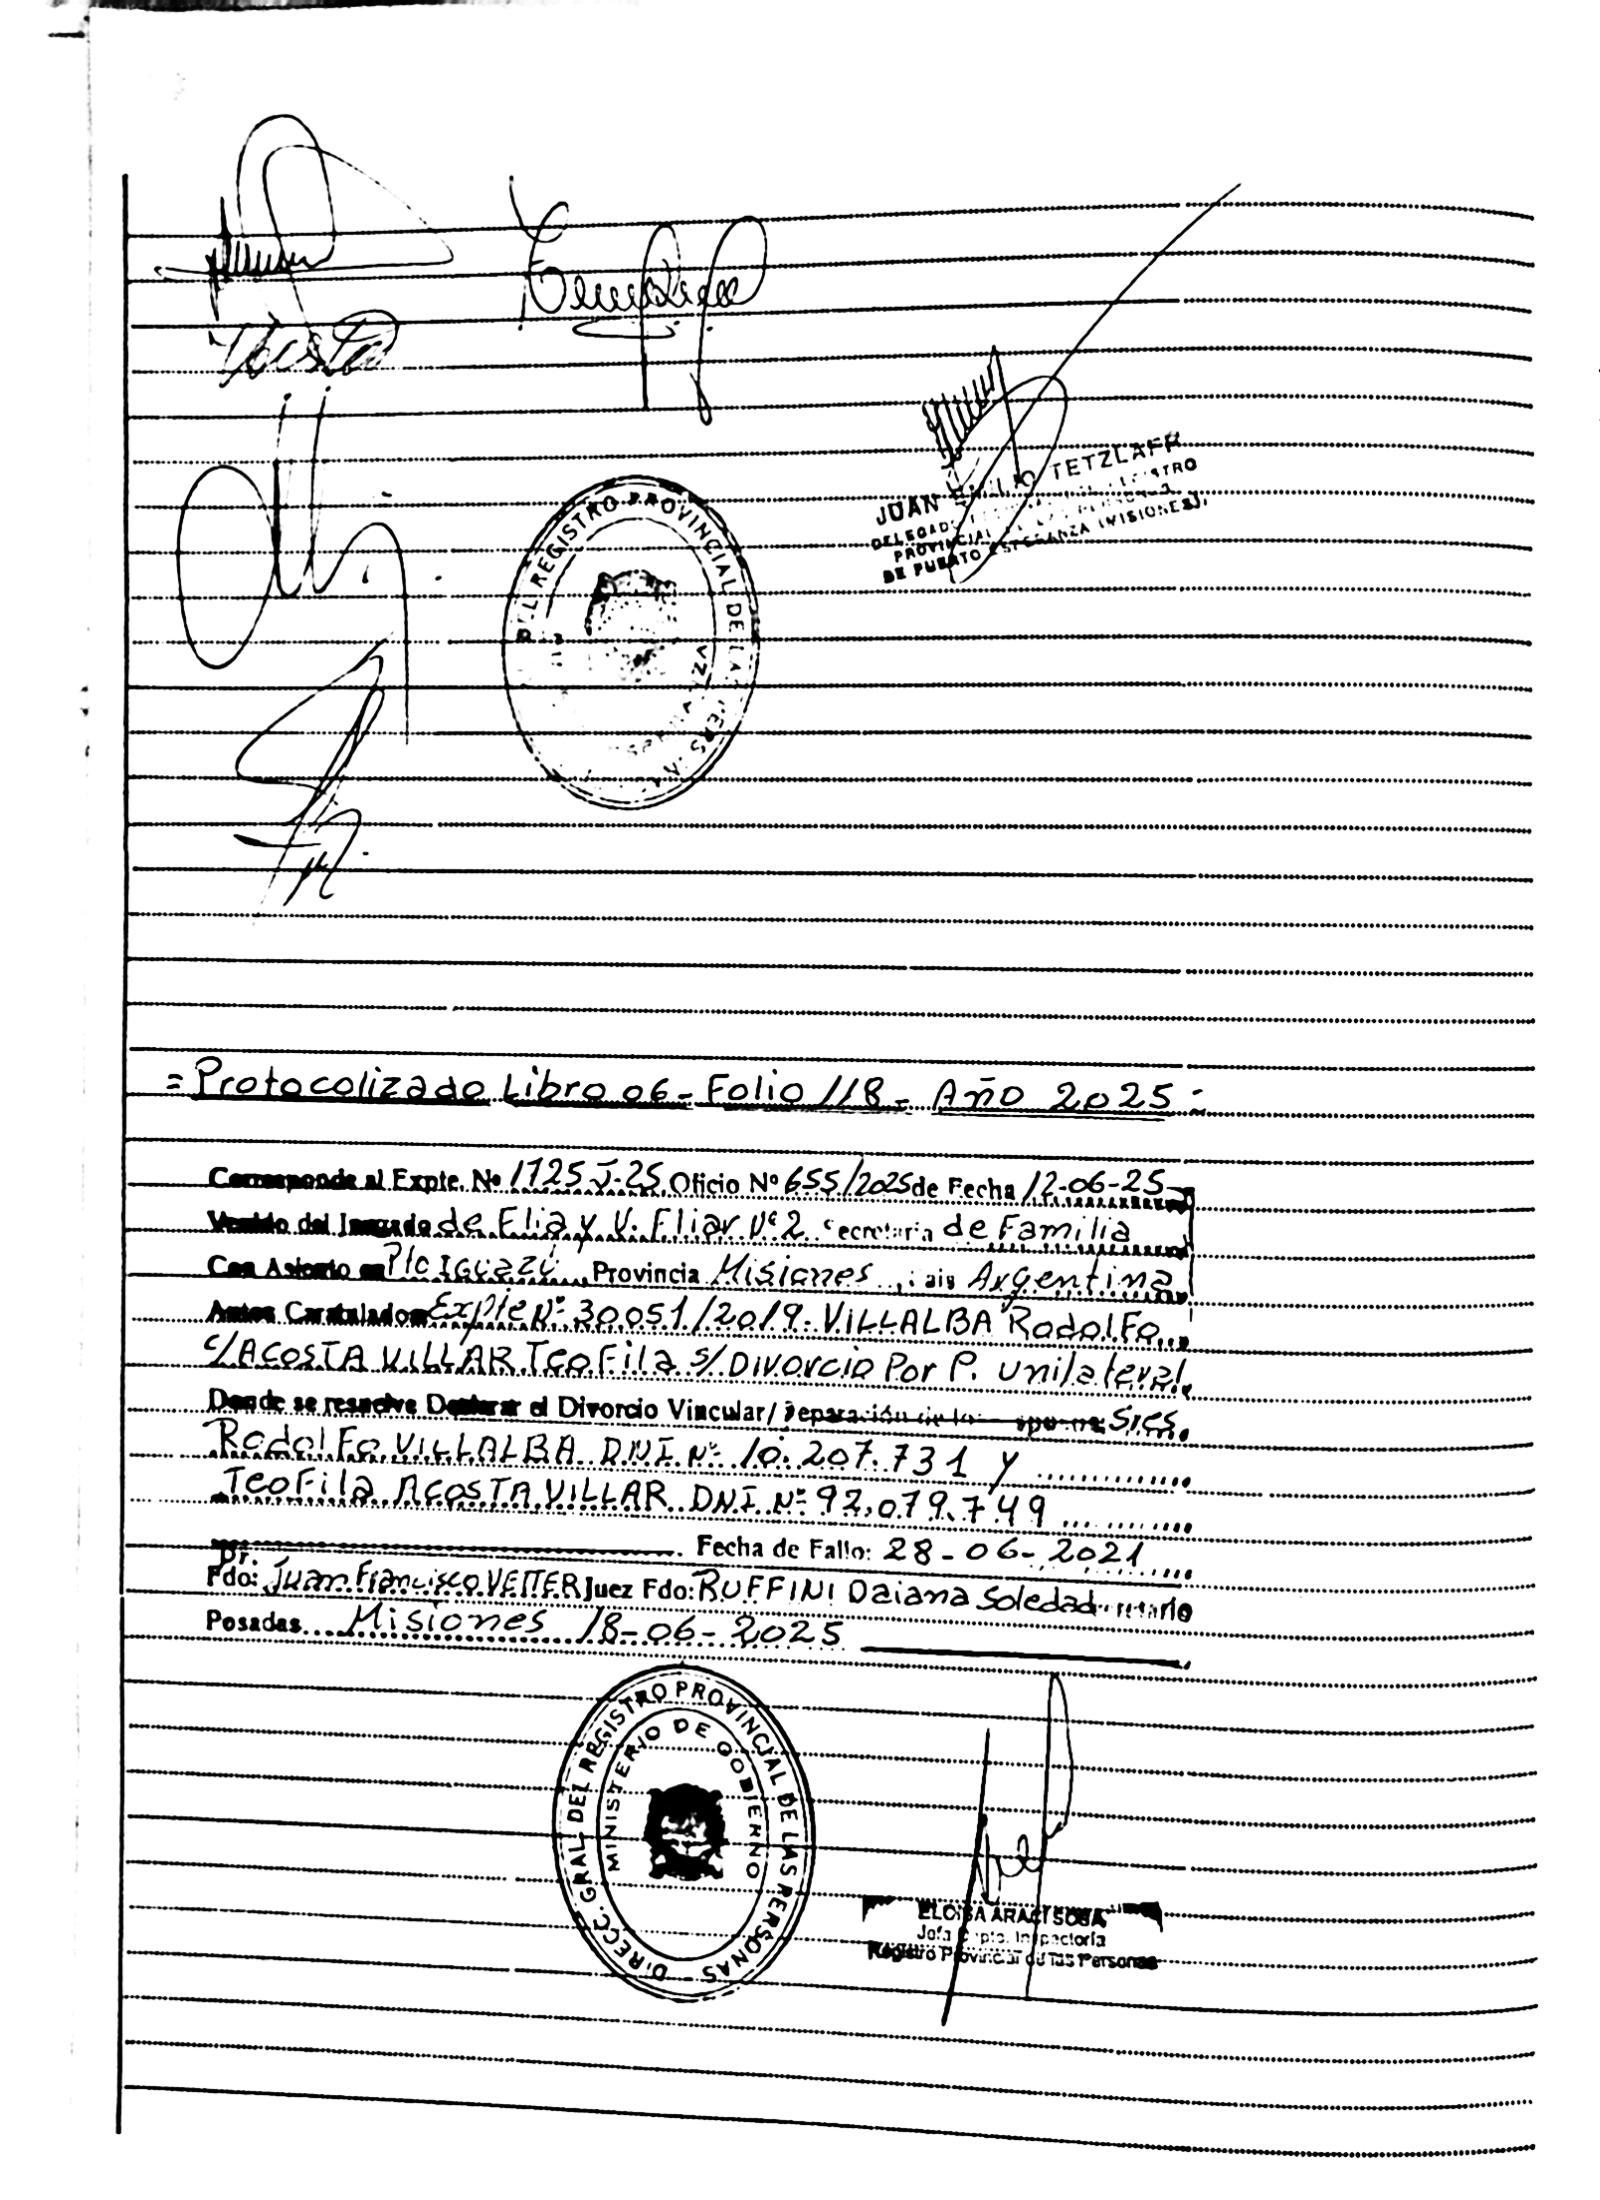 Acosta
JUAN EMILIO TETZLAFF
DELEGADO REGISTRO
PROVINCIAL DE LAS PERSONAS
DE PUERTO ESPERANZA (MISIONES)
REGISTRO PROVINCIAL DE LAS PERS
= Protocolizado Libro 06 - Folio 118 - Año 2025 =
Corresponde al Expte. Nº 1725-J-25 Oficio Nº 655/2025 de Fecha 12-06-25
Venido del Juzgado de Flia y V. Fliar Nº 2 Secretaría de Familia
Con Asiento en Pto Iguazú Provincia Misiones, País Argentina
Autos Caratulados Expte Nº 30051/2019 - VILLALBA Rodolfo
c/ ACOSTA VILLAR Teofila s/ Divorcio Por P. unilateral
Donde se resuelve Declarar el Divorcio Vincular/ Separación de los Sres
Rodolfo VILLALBA DNI Nº 10.207.731 y
Teofila ACOSTA VILLAR DNI Nº 92.079.749
Fecha de Fallo: 28-06-2021
Dr.
Fdo: Juan Francisco VETTER Juez Fdo: RUFFINI Daiana Soledad Secretario
Posadas Misiones 18-06-2025
DIRECC. GRAL. DEL REGISTRO PROVINCIAL DE LAS PERSONAS -
MINISTERIO DE GOBIERNO
ELOISA ARACI SOSA
Jefa Dpto. Inspectoría
Registro Provincial de las Personas